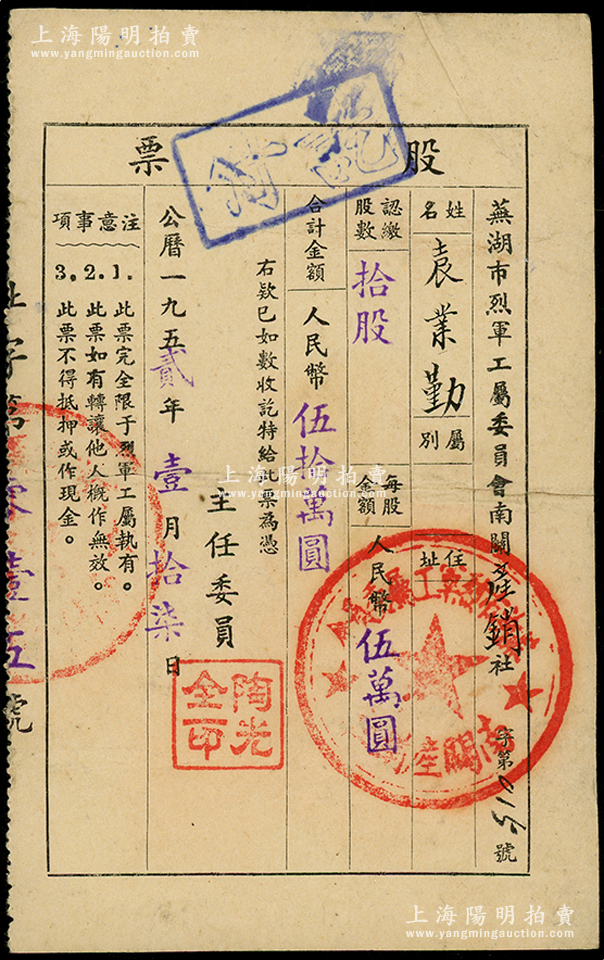 上海陽明拍賣
www.yangmingauction.com
股票
蕪湖市烈軍工屬委員會南關產銷社
字第015號
姓名 袁業勤
屬別
住址
認繳股數 拾股
每股金額 人民幣 伍萬圓
合計金額 人民幣 伍拾萬圓
右欵已如數收訖特給此票為憑
主任委員
陶光全印
公曆一九五貳年壹月拾柒日
注意事項
1. 此票完全限于烈軍工屬執有。
2. 此票如有轉讓他人概作無效。
3. 此票不得抵押或作現金。
社字第零壹五號
上海陽明拍賣
www.yangmingauction.com
上海陽明拍賣
www.yangmingauction.com